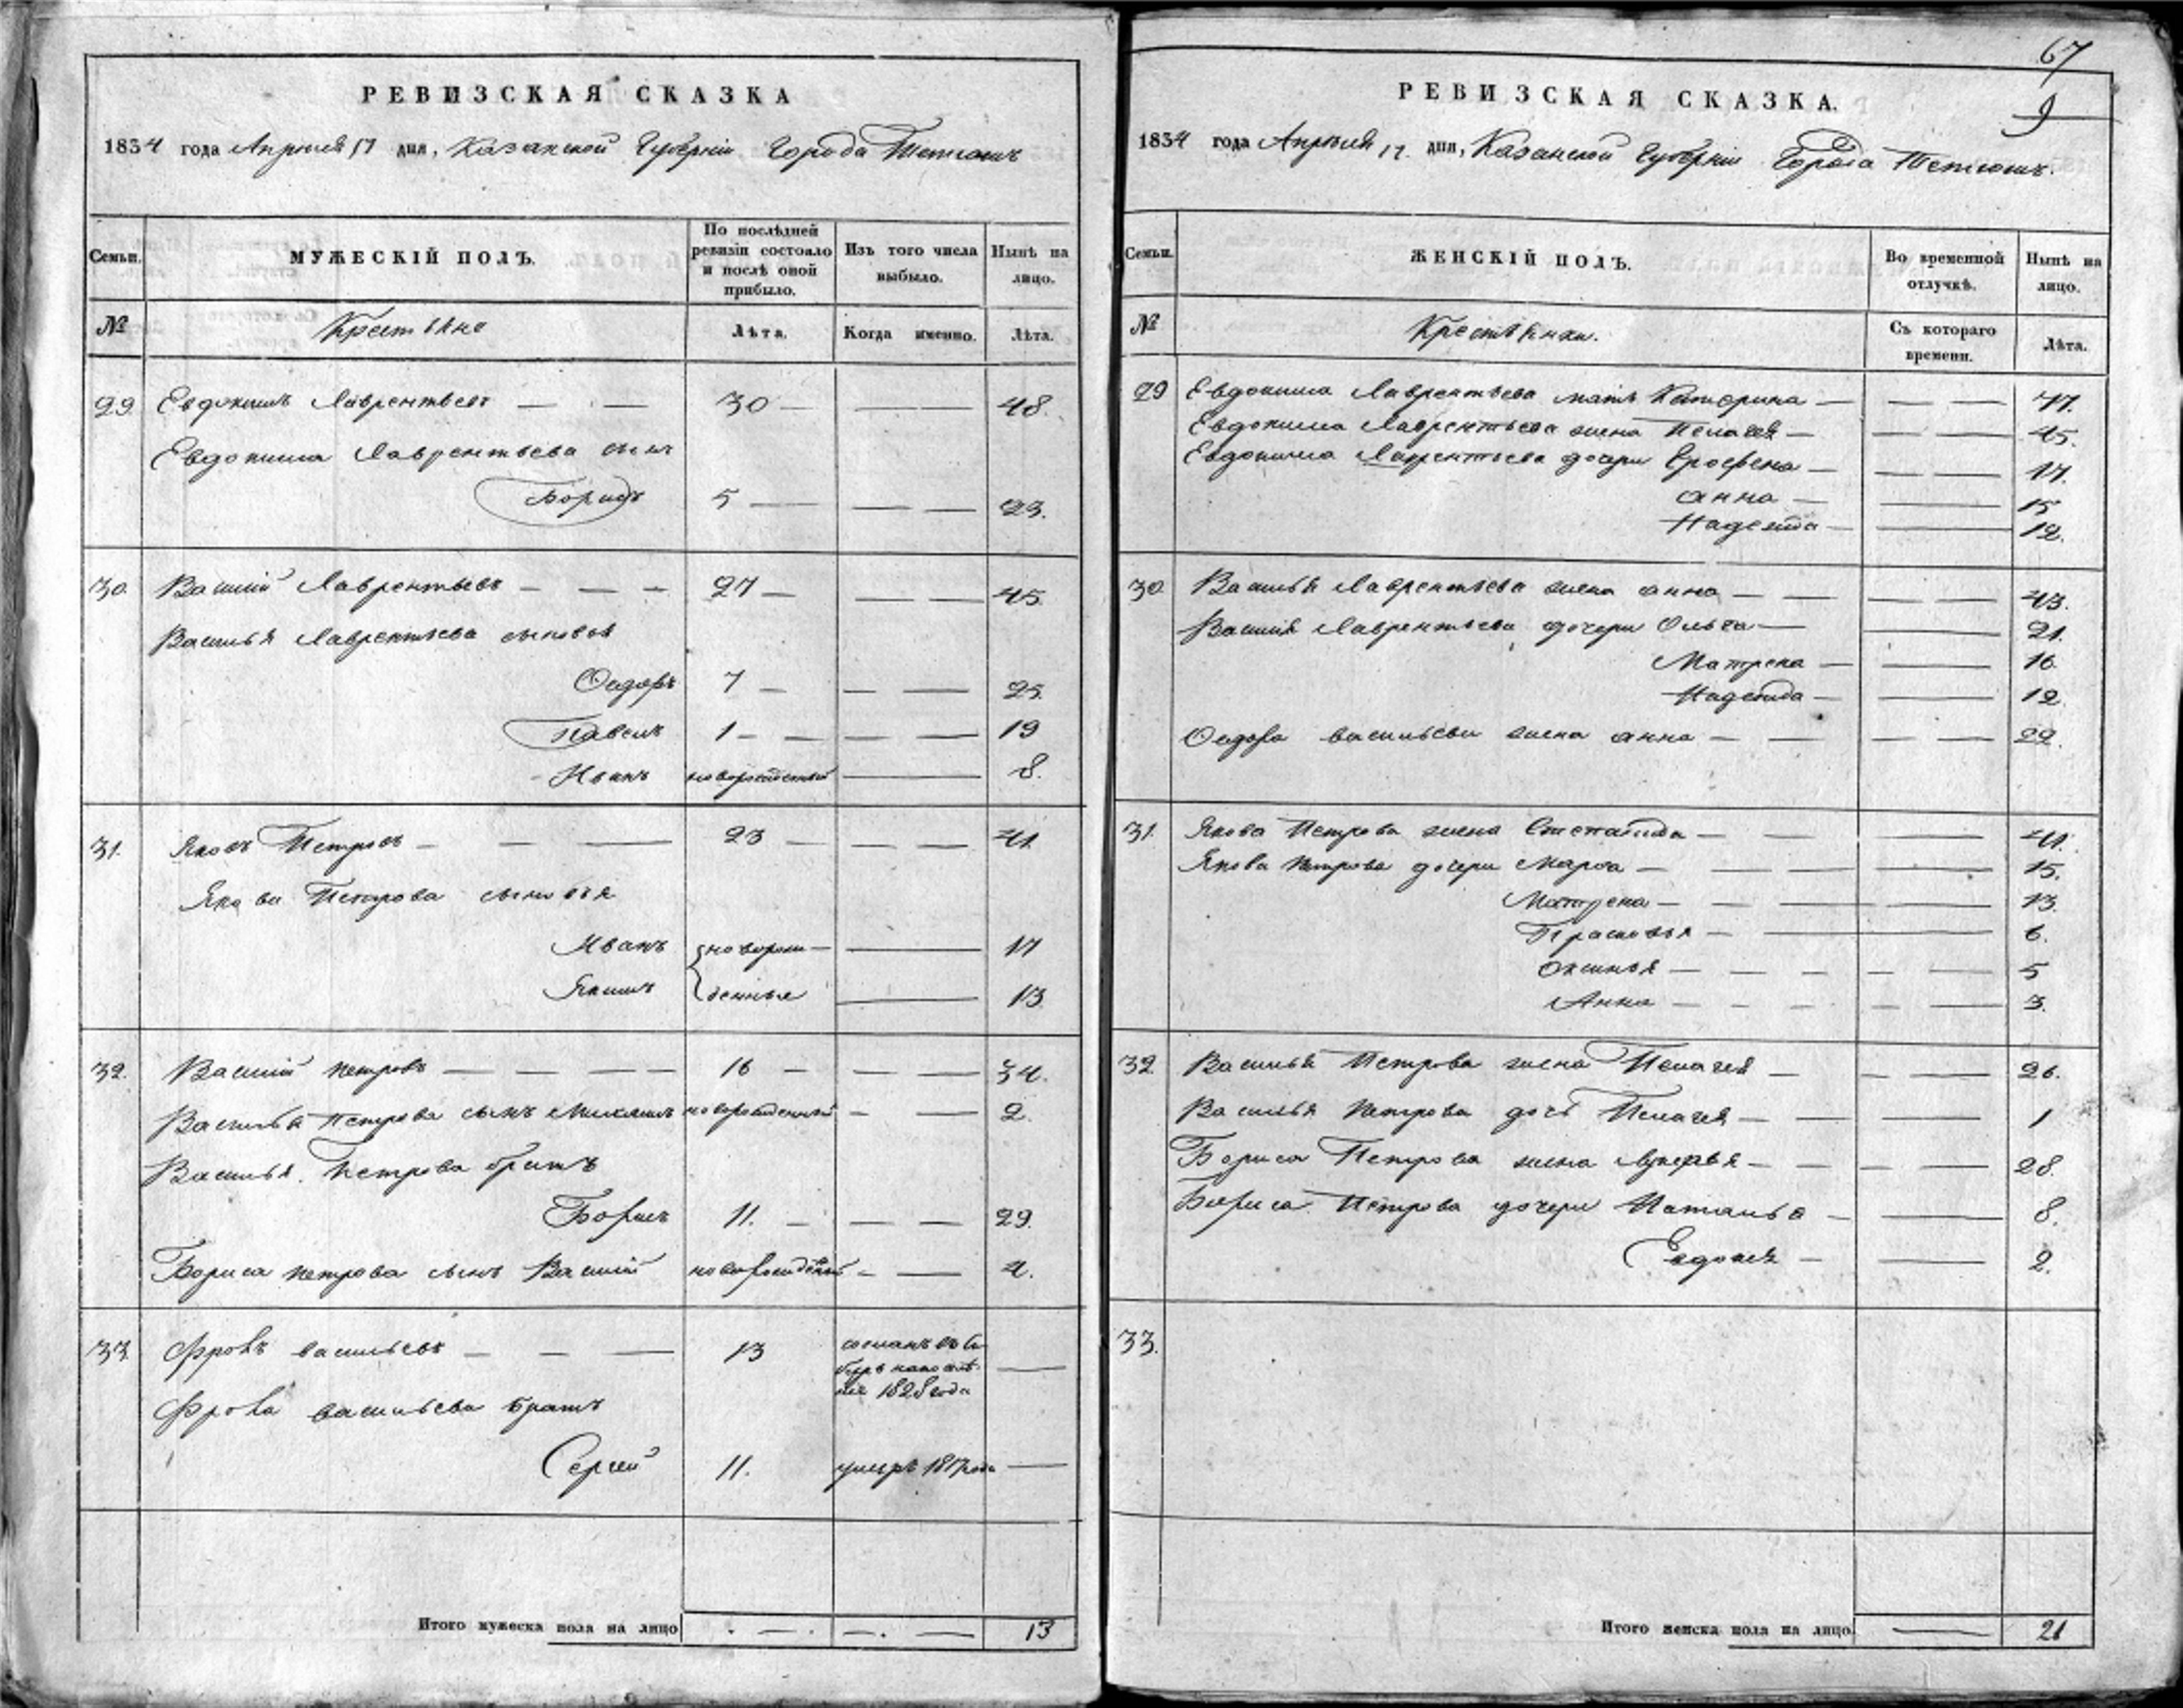 РЕВИЗСКАЯ СКАЗКА
1834 года Апреля 17 дня, Казанской Губернiи Города Тетюшъ
Семьи. МУЖЕСКIЙ ПОЛЪ. По послѣдней ревизiи состояло и послѣ оной прибыло. Изъ того числа выбыло. Нынѣ на лицо.
№ Крестьяне Лѣта. Когда именно. Лѣта.
29. Евдокимъ Лаврентьевъ 30 48.
Евдокима Лаврентьева сынъ
Борисъ 5 23.
30. Василiй Лаврентьевъ 27 45.
Василья Лаврентьева сыновья
Сидоръ 7 25.
Павелъ 1 19
Иванъ новорожденный 8.
31. Яковъ Петровъ 23 41.
Якова Петрова сыновья
Иванъ новорож- 17
Якимъ денные 13.
32. Василiй Петровъ 16 34.
Василья Петрова сынъ новорожденный 2.
Василья Петрова братъ
Борисъ 11. 29.
Бориса Петрова сынъ Василiй новорожденный 4.
33. Фролъ Васильевъ 13 сосланъ въ Си-
бирь на поселе-
нiе 1828 года
Фрола Васильева братъ
Сергей 11. умеръ 1817 года
Итого мужеска пола на лицо 13
67
9
РЕВИЗСКАЯ СКАЗКА.
1834 года Апреля 17. дня, Казанской Губернiи Города Тетюшъ.
Семьи. ЖЕНСКIЙ ПОЛЪ. Во временной отлучкѣ. Нынѣ на лицо.
№ Крестьянки. Съ котораго времени. Лѣта.
29 Евдокима Лаврентьева мать Катерина 77.
Евдокима Лаврентьева жена Пелагея 45.
Евдокима Лаврентьева дочери 17.
Анна 15
Надежда 12.
30. Василья Лаврентьева жена Анна 43.
Василья Лаврентьева дочери Ольга 21.
Матрена 16.
Надежда 12
Сидора Васильева жена Анна 22.
31. Якова Петрова жена Степанида 41.
Якова Петрова дочери Марфа 15.
Матрена 13.
Прасковья 6.
Оксинья 5
Анна 3.
32. Василья Петрова жена Пелагея 26.
Василья Петрова дочь Пелагея 1
Бориса Петрова жена Лукерья 28.
Бориса Петрова дочери Наталья 8.
2.
33.
Итого женска пола на лицо. 21